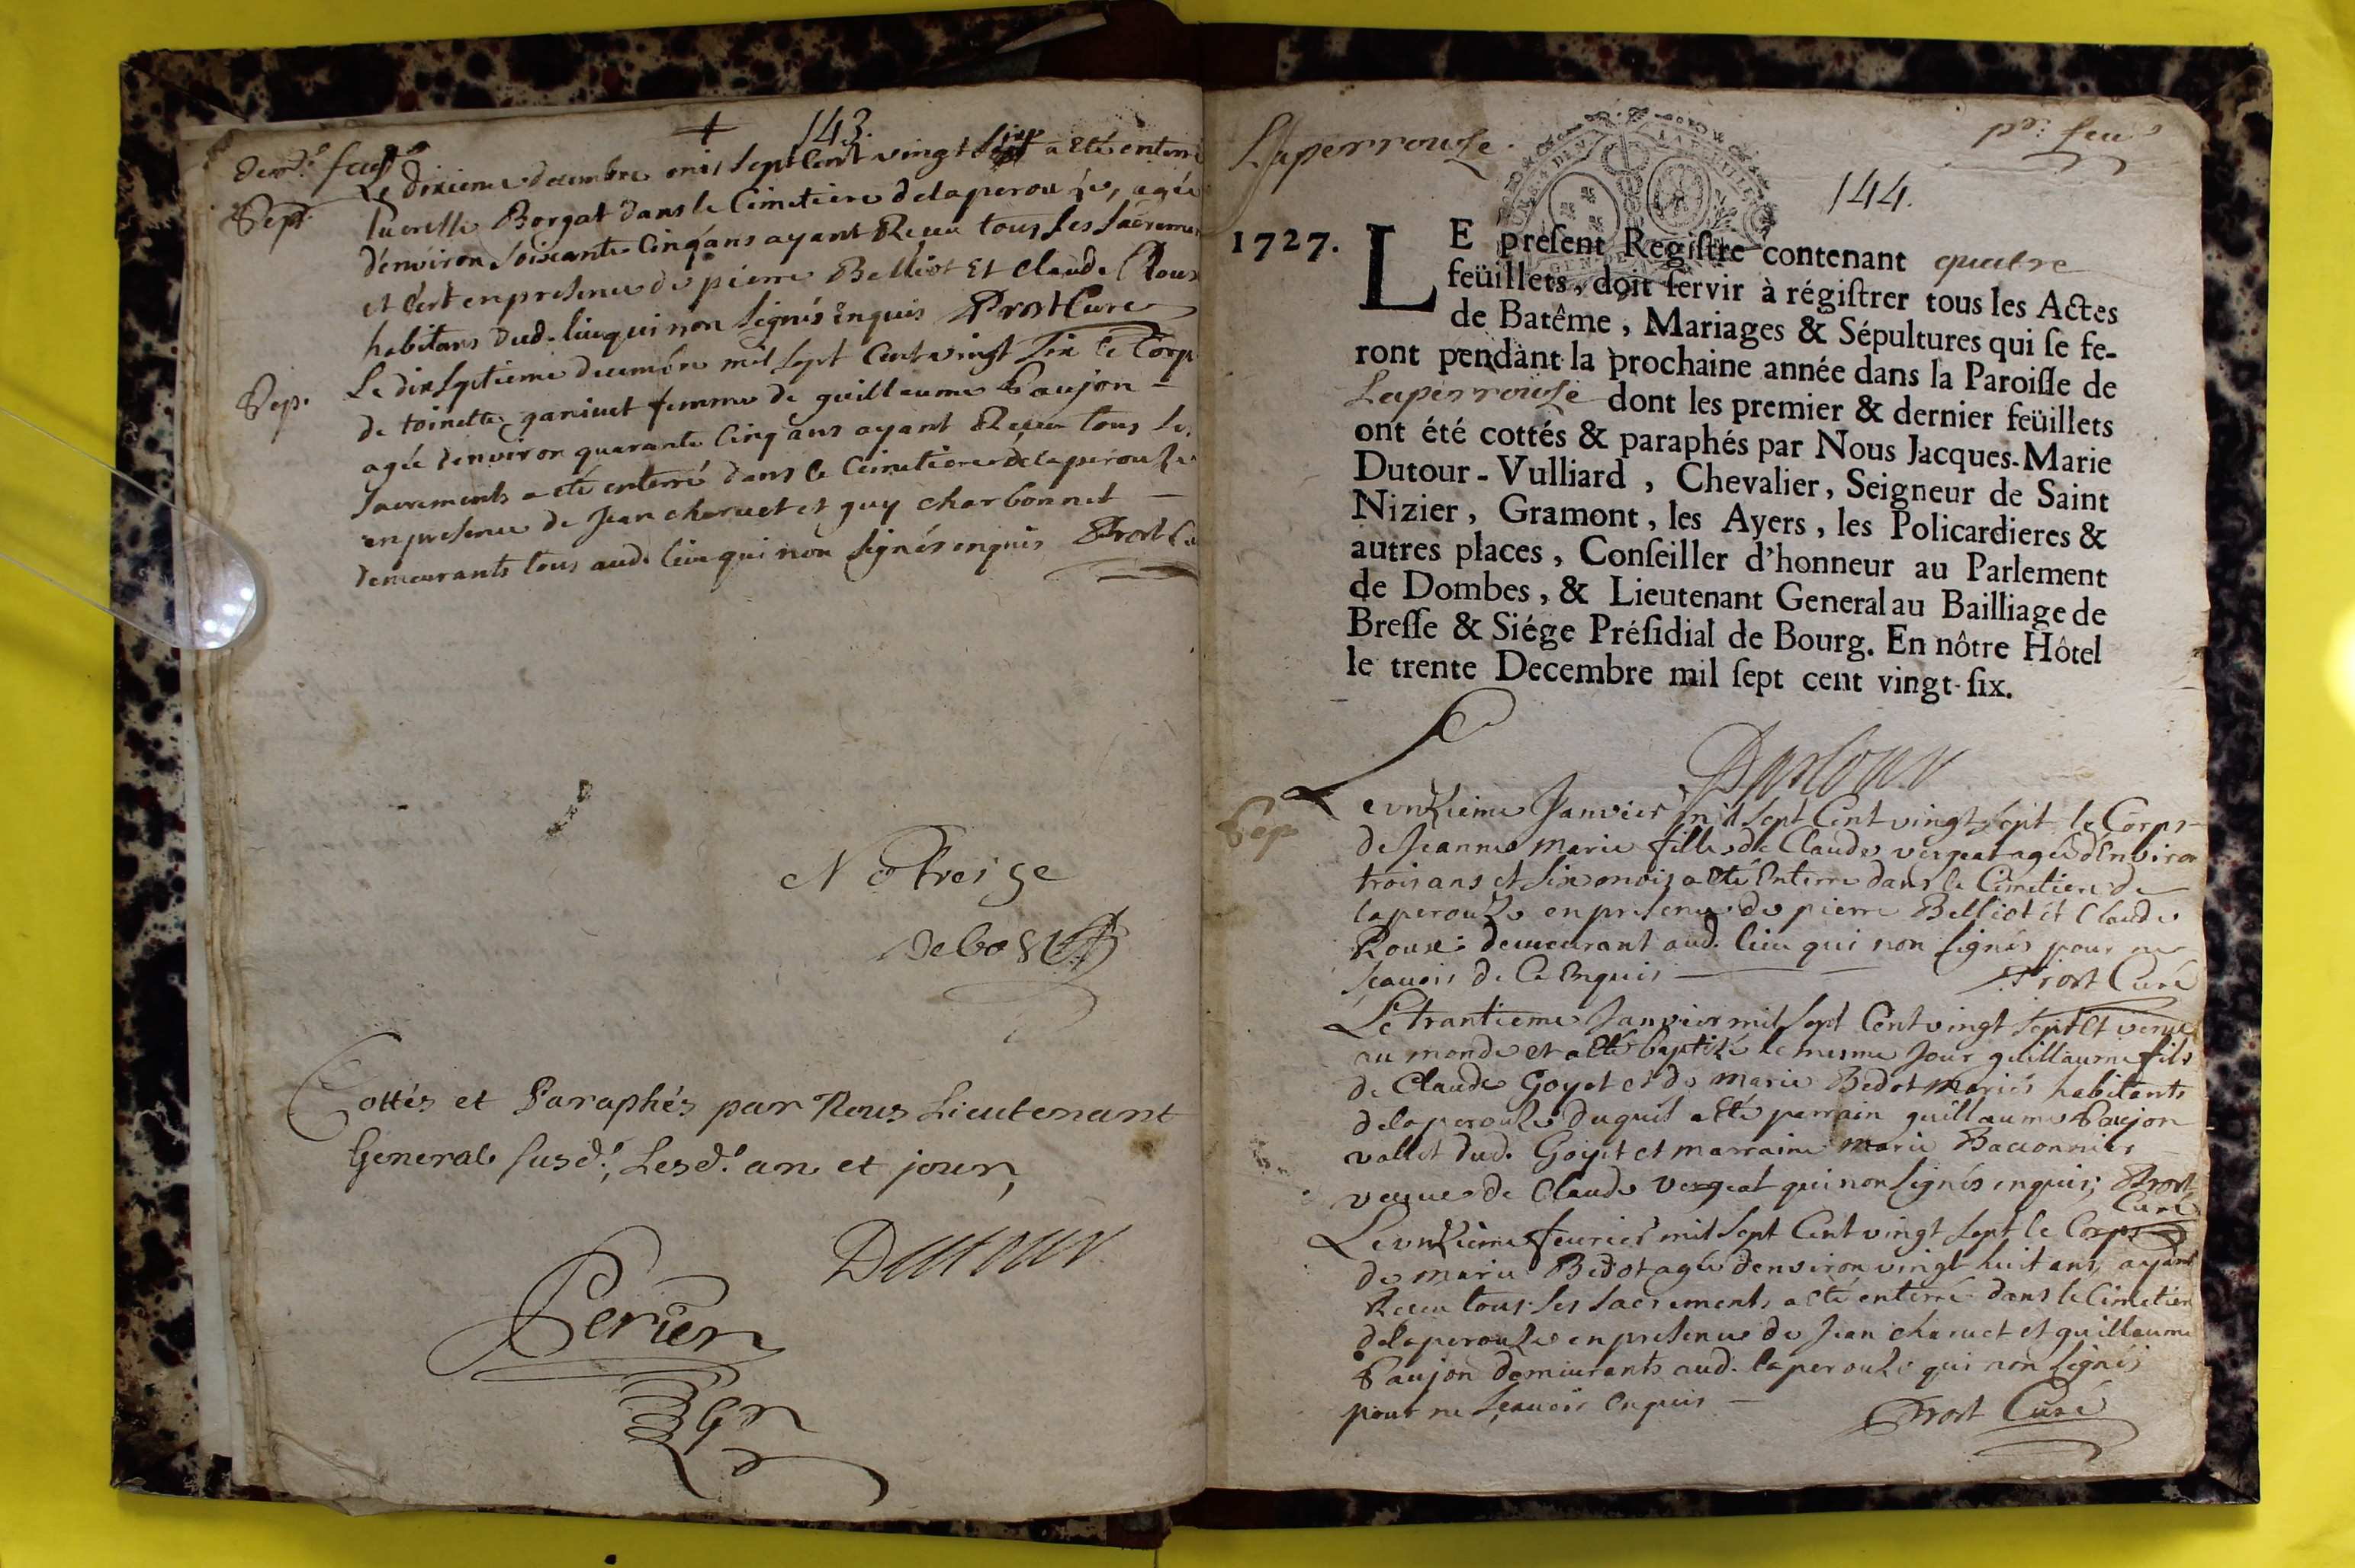 + 143.
der.r feuil.t
Le dixieme decembre mil sept Cent vingt six a eté enterré
Sept. Borgat dans le Cimetiere de laperouze, agée
d'environ Soixante Cinq ans ayant Receu tous les Sacremen
et C'est en presence de pierre Belliot Et Claude Roux
habitans dud. lieu qui non signés Enquis Prost Curé
Sep. Le dix septieme decembre mil sept Cent vingt six le Corps
de toinette ganivet femme de guillaume Paujon
agée d'environ quarante Cinq ans ayant Receu tous les
sacrements a eté enterré dans le Cimetiere de laperouze
en presence de Jean charvet et guy charbonnet
demeurants tous aud. lieu qui non signés enquis Prost Cu
Cottés et Paraphés par Nous Lieutenant
General susd.t, Lesd.t an et jour,
Dutour
Perier
Laperrouse. pr. feu.t
144.
1727. LE preſent Regiſtre contenant quatre
feüillets, doit ſervir à régiſtrer tous les Actes
de Batême, Mariages & Sépultures qui ſe fe-
ront pendant la prochaine année dans la Paroiſſe de
Laperrouse dont les premier & dernier feüillets
ont été cottés & paraphés par Nous Jacques-Marie
Dutour-Vulliard, Chevalier, Seigneur de Saint
Nizier, Gramont, les Ayers, les Policardieres &
autres places, Conſeiller d'honneur au Parlement
de Dombes, & Lieutenant General au Bailliage de
Breſſe & Siége Préſidial de Bourg. En nôtre Hôtel
le trente Decembre mil ſept cent vingt-ſix.
Dutour
Sep Le vnzieme Janvier mil sept Cent vingt sept le Corps
de Jeanne marie fille de Claude vergeat agée d'Environ
trois ans et six mois a eté Enterre dans le Cimetiere de
laperouze en presence de pierre Belliot et Claude
Roux demeurant aud. lieu qui non signés pour ne
scavoir de Ce Enquis Prost Curé
Le trantieme Janvier mil sept Cent vingt sept Et venu
au monde et a eté baptizé le mesme Jour guillaume fils
de Claude Goyet et de marie Bedot mariés habitants
de laperouze duquel a eté parrain guillaume Paujon
vallet dud. Goyet et marraine marie Baconnier
veuve de Claude vergeat qui non signés enquis; Prost
Curé
Le vnzieme feurier mil sept Cent vingt sept le Corps
de marie Bedot agée denviron vingt huit ans, ayant
Receu tous les sacrements a eté enterré dans le Cimetier
de laperouze en presence de Jean charvet et guillaume
Paujon demeurants aud. laperouze qui non signés
pour ne scavoir Enquis Prost Curé